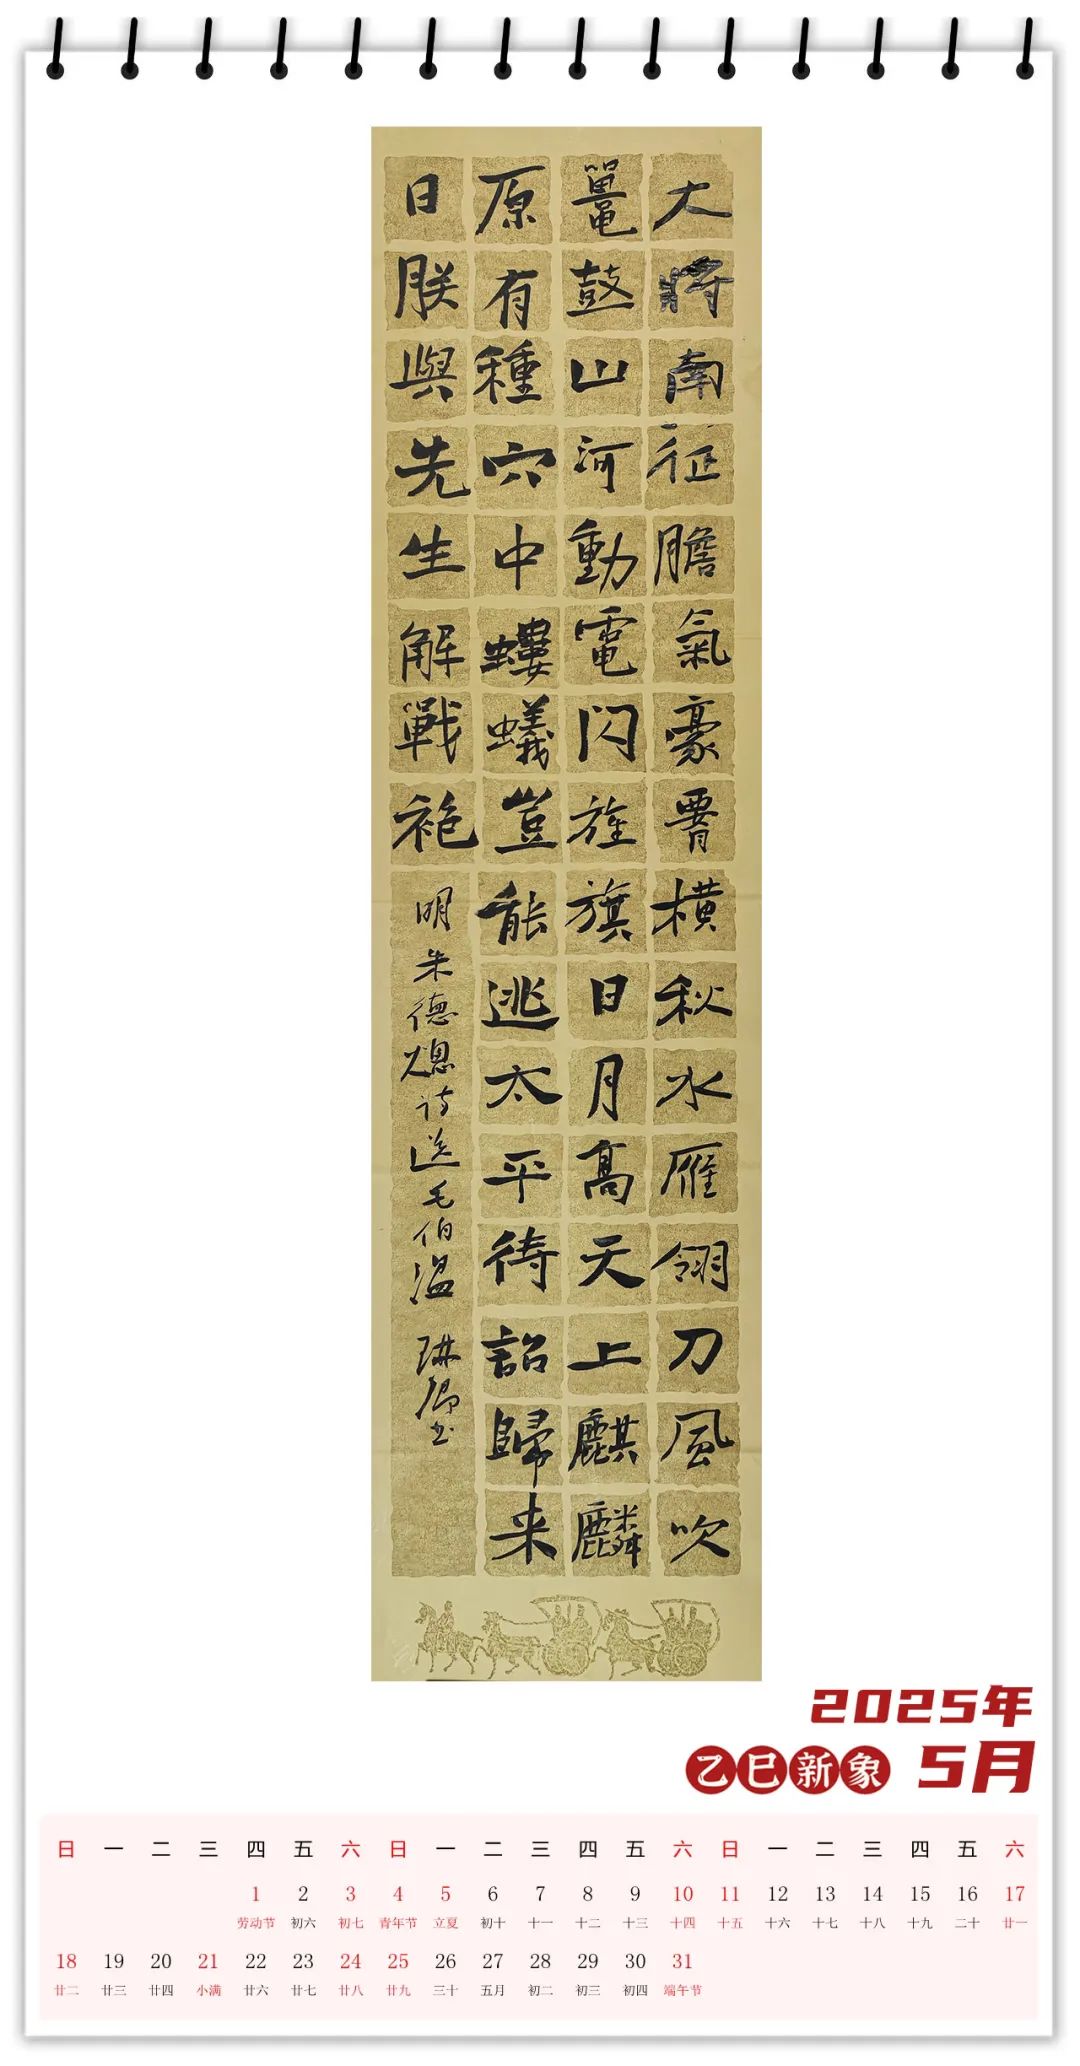 大將南征膽氣豪腰橫秋水雁翎刀風吹
鼉鼓山河動電閃旌旗日月高天上麒麟
原有種穴中螻蟻豈能逃太平待詔歸来
日朕與先生解戰袍
明朱德熜诗送毛伯温 琳卿书
2025年
乙巳新象 5月
日 一 二 三 四 五 六 日 一 二 三 四 五 六 日 一 二 三 四 五 六
1 2 3 4 5 6 7 8 9 10 11 12 13 14 15 16 17
劳动节 初六 初七 青年节 立夏 初十 十一 十二 十三 十四 十五 十六 十七 十八 十九 二十 廿一
18 19 20 21 22 23 24 25 26 27 28 29 30 31
廿二 廿三 廿四 小满 廿六 廿七 廿八 廿九 三十 五月 初二 初三 初四 端午节